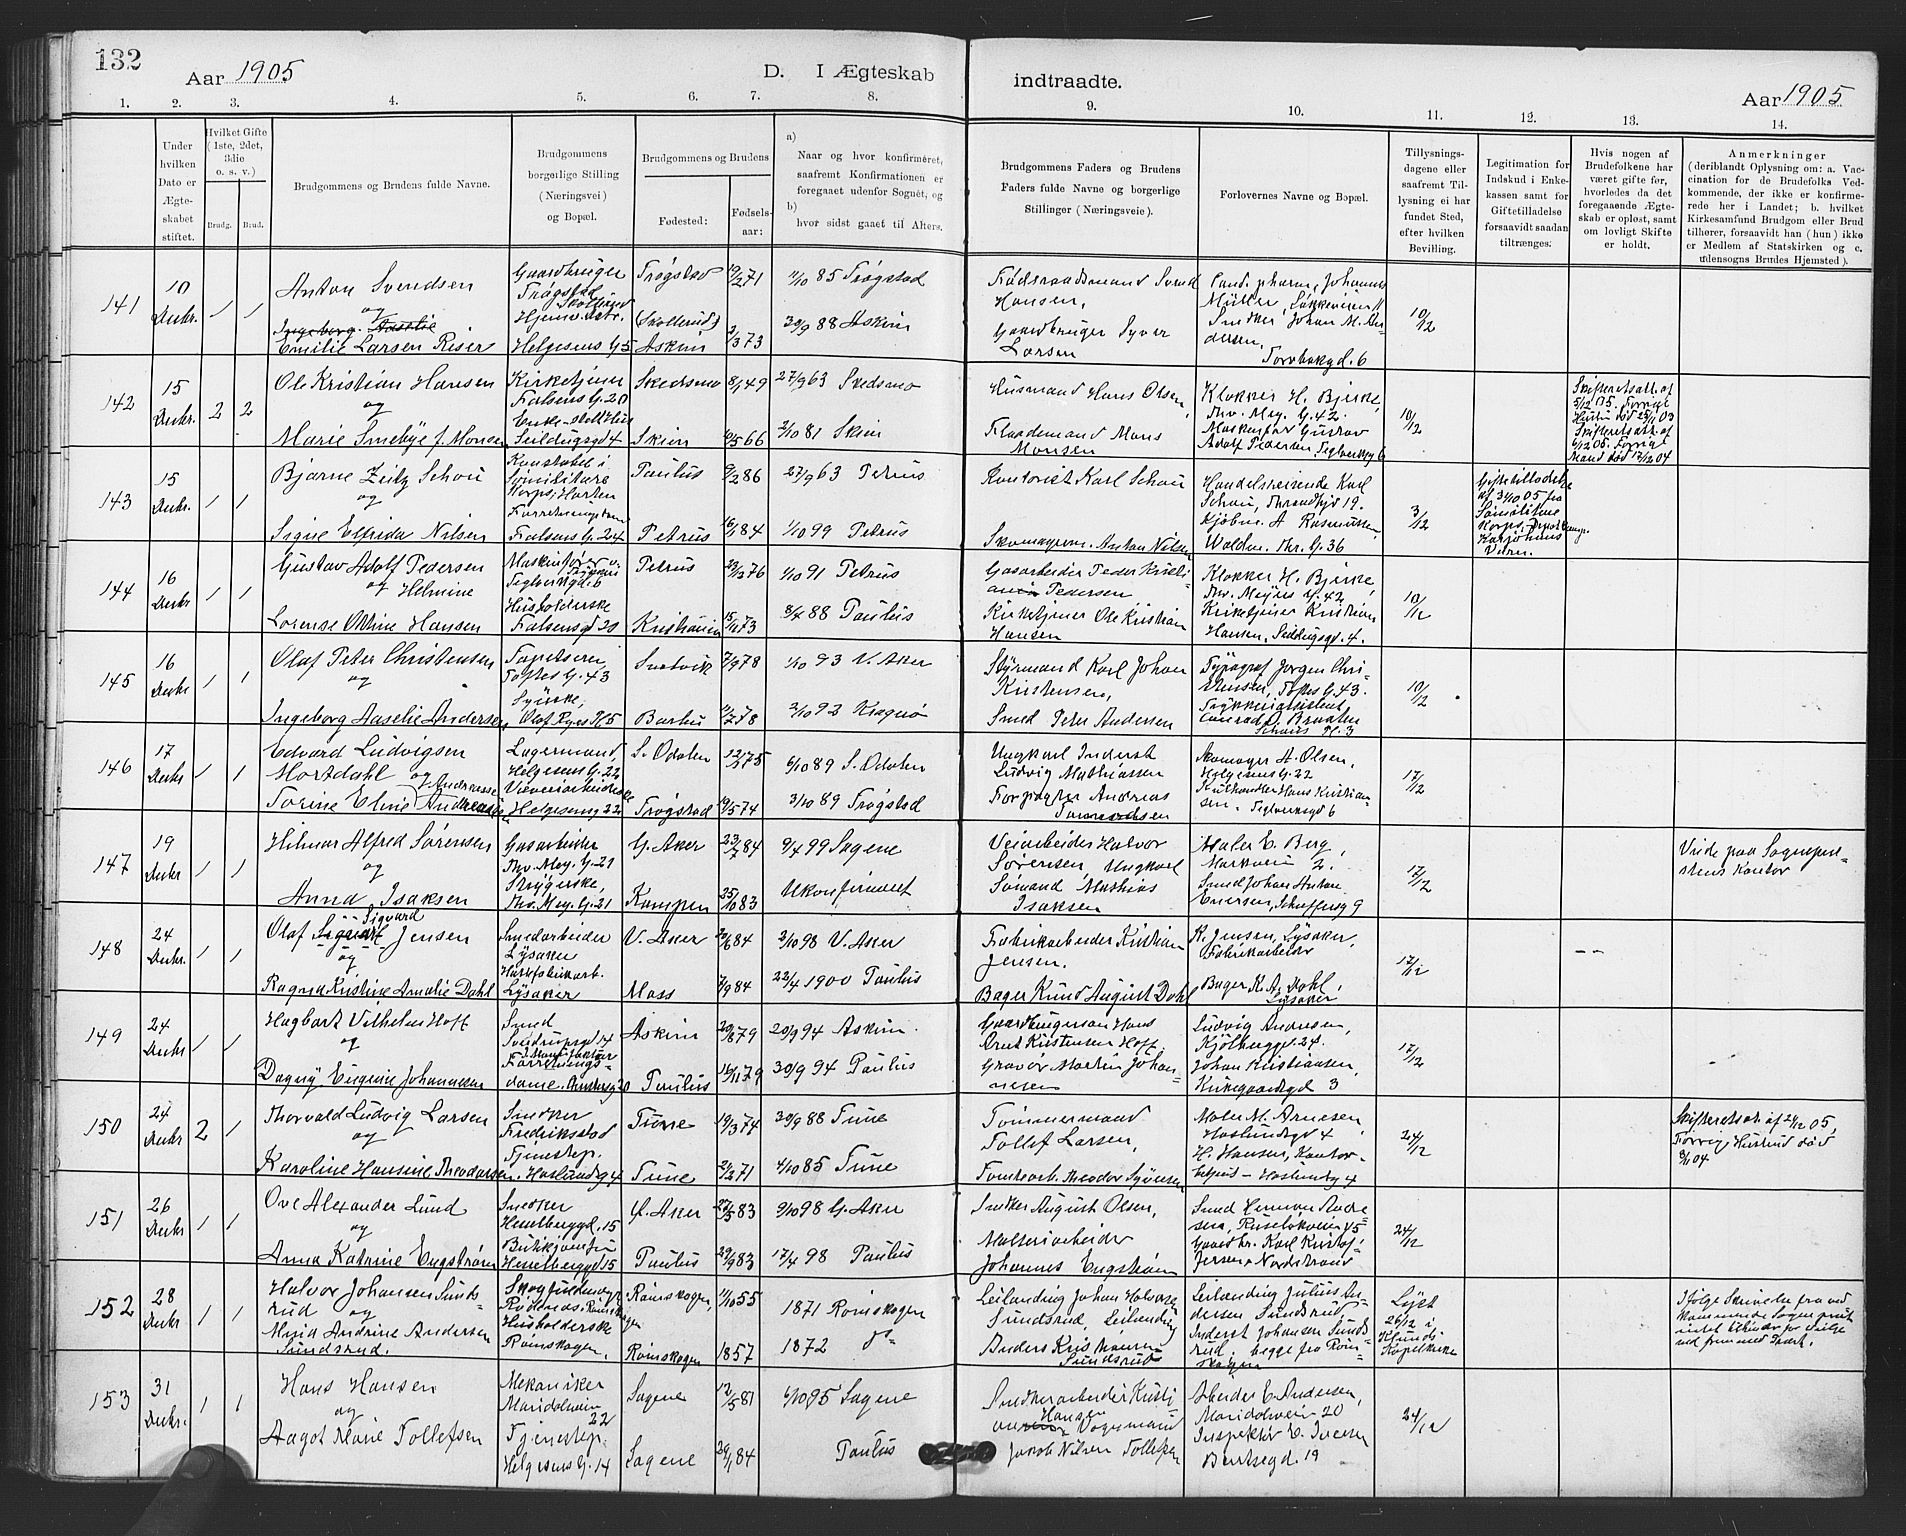 132
Aar 1905
D. I Ægteskab
indtraadte.
Aar 1905
1. 2. 3. 4. 5. 6. 7. 8. 9. 10. 11. 12. 13. 14.
Under hvilken Dato er Ægteskabet stiftet.
Hvilket Gifte (1ste, 2det, 3die o. s. v.)
Brudg. Brud.
Brudgommens og Brudens fulde Navne.
Brudgommens borgerlige Stilling (Næringsvei) og Bopæl.
Brudgommens og Brudens
Fødested:
Fødselsaar:
a) Naar og hvor konfirméret, saafremt Konfirmationen er foregaaet udenfor Sognet, og
b) hvor sidst gaaet til Alters.
Brudgommens Faders og Brudens Faders fulde Navne og borgerlige Stillinger (Næringsveie).
Forlovernes Navne og Bopæl.
Tillysningsdagene eller saafremt Tillysning ei har fundet Sted, efter hvilken Bevilling.
Legitimation for Indskud i Enkekassen samt for Giftetilladelse forsaavidt saadan tiltrænges.
Hvis nogen af Brudefolkene har været gifte før, hvorledes da det foregaaende Ægteskab er opløst, samt om lovligt Skifte er holdt.
Anmerkninger (deriblandt Oplysning om: a. Vaccination for de Brudefolks Vedkommende, der ikke er konfirmerede her i Landet; b. hvilket Kirkesamfund Brudgom eller Brud tilhører, forsaavidt han (hun) ikke er Medlem af Statskirken og c. udensogns Brudes Hjemsted).
141 10 Decbr. 1 1
Anton Svendsen
og
Emilie Larsen Riser
Gaardbruger Trøgstad
Helgesens G. 5
Trøgstad
Askim
19/2 71
2/3 73
1/10 85 Trøgstad
30/9 88 Askim
Hansen,
Gaardbruger Syver Larsen
Cand. pharm. Johannes Müller,
Snedker Johan M. Andersen,
10/12
142 15 Decbr. 2 2
Ole Kristian Hansen
og
Marie Smebye f. Monsen
Kirketjener Falsens G. 20
Seildugsgd 4
Skedsmo
Skien
8/1 49
6/5 66
27/9 63 Skedsmo
2/10 81 Skien
Husmand Hans Olsen,
Flaademand Mons Monsen
Klokker H. Bjerke, Thv. Mey. G. 42.
Maskinfyr Gustav Adolf Pedersen, Teglverksg 6
10/12
Skifteretsatt. af 5/12 05. Forrige Hustru død 25/1 03
Skifteretsatt. af 6/12 05. Forrige Mand død 17/12 04
143 15 Decbr. 1 1
Bjarne Zeitz Schou
og
Signe Elfrida Nilsen
Konstabel i Sømilitære Korps, Horten
Falsens G. 24
Paulus
Petrus
9/2 86
16/1 84
27/9 63 Petrus
1/10 99 Petrus
Kontorist Karl Schou
Skomagerm. Anton Nilsen
Handelsreisende Karl Schou, Throndhjgd 19.
Kjøbm. A. Rasmussen, Waldm. Thr. G. 36
3/12
Giftetilladelse af 31/10 05 fra Sømilitære Korps,
144 16 Decbr 1 1
Gustav Adolf Pedersen
og Helmine
Lorense Othine Hansen
Teglverksgd. 6
Husholderske Falsensgd 20
Petrus
Kristiania
23/12 76
15/12 73
1/10 91 Petrus
8/4 88 Paulus
Gasarbeider Peder Kristiansen Pedersen
Kirketjener Ole Kristian Hansen
Klokker H. Bjerke, Thv. Meyers G. 42
Kirketjener Kristian Hansen, Seildugsgd. 4.
10/12
145 16 Decbr 1 1
Olaf Peter Christensen
og
Ingeborg Aaselie Andersen
Tapetserer, Toftes G. 43
Syerske, Olaf Ryes Pl. 5
Svelvik
Barbu
7/9 78
11/2 78
1/10 93 V. Aker
2/10 92 Kragerø
Styrmand Karl Johan Kristensen,
Smed Peter Andersen
Typograf Jørgen Christensen, Toftes G. 43.
Conrad O. Braaten Schous Pl. 3
10/12
146 17 Decbr 1 1
Edvard Ludvigsen Mortdahl og
Torine Eline Andreasen
Lagermand, Helgesens G. 22
Væveriarbeiderske Helgesensg 22
S. Odalen
Trøgstad
12/2 75
19/5 74
6/10 89 S. Odalen
3/10 89 Trøgstad
Ungkarl Inderst Ludvig Mathiassen
Forpagter Andreas
Skomager A. Olsen, Helgesens G. 22
Kulhandler Hans Kristiansen, Teglverksgd 6
17/12
147 19 Decbr 1 1
Hilmar Alfred Sørensen
og
Anna Isaksen
Gasarbeider Thv. Mey. G. 21
Strygerske, Thv. Mey. G. 21
G. Aker
Kampen
23/7 84
25/10 83
9/4 99 Sagene
Ukonfirmeret
Veiarbeider Halvor Sørensen,
Ungkarl Sømand Mathias Isaksen
Maler E. Berg, Markveien 2.
Smed Johan Anton Evensen, Schæffersg 9
17/12
Viede paa Sogneprestens Kontor
148 24 Decbr. 1 1
Olaf Sigvard Jensen
og
Ragna Kristine Amalie Dahl
Smedarbeider Lysaker
Lysaker
V. Aker
Moss
20/6 84
7/9 84
2/10 98 V. Aker
22/4 1900 Paulus
Fabrikarbeider Kristian Jensen.
Bager Knud August Dahl
K. Jensen, Lysaker, Fabrikarbeider
Bager K. A. Dahl, Lysaker
17/12
149 24 Decbr 1 1
Hagbart Vilhelm Hoff
og
Dagny Eugenie Johannesen
Smed Sverdrupsgd 14
Forretningsdame,
Askim
Paulus
20/8 79
16/11 79
20/9 94 Askim.
30/9 94 Paulus
Gaardbrugersøn Hans Arnt Kristensen Hoff.
Gravør Martin Johannesen
Ludvig Andresen, Kjølberggd 24.
Johan Kristiansen, Kirkegaardsgd 3
17/12
150 24 Decbr 2 1
Thorvald Ludvig Larsen
og
Karoline Hansine Theodorsen
Snedker Fredriksstad
Tjenestep. Haslundsg 4
Tune
Tune
19/3 74
2/2 71
30/9 88 Tune
4/10 85 Tune
Tømmermand Tollef Larsen,
Tomtearb. Theodor Syversen
Maler M. Arnesen, Haslundsgd 4,
H. Hansen, Kontorbetjent - Haslundsg 4
24/12
Skifteretsatt. af 24/12 05, Forrige Hustru død 9/11 04
151 26 Decbr 1 1
Ove Alexander Lund
og
Anna Katrine Engstrøm
Snedker Hesselberggd. 15
Hesselberggd 15
Ø. Aker
Paulus
27/5 83
29/9 83
9/10 98 G. Aker
17/4 98 Paulus
Snedker August Olsen,
Malteriarbeider Johannes Engstrøm
Smed Herman Andresen, Ruseløkveien 45
Gaardbr. Karl Kristof. Jensen, Nordstrand
24/12
152 28 Decbr 1 1
Halvor Johansen Sundsrud og
Maria Andrine Andersen Sundsrud.
Husholderske Rømskogen,
Rømskogen,
Rømskogen
11/10 55
1857
1871 Rømskogen
1872 do
Leilænding Johan Halvorsen Sundsrud,
Leilænding Anders Kristiansen Sundsrud
Leilænding Julius Andersen Sundsrud
Inderst Johansen Sundsrud. begge fra Rømskogen
Lyst 26/12 i Klunds Kapelkirke
Ifølge Skrivelse fra vedkommende Sogneprest
153 31 Decbr. 1 1
Hans Hansen
og
Aagot Marie Tollefsen
Mekaniker Maridalsveien 22
Tjenestep. Helgesens G. 14
Sagene
Sagene
12/5 81
29/1 84
6/10 95 Sagene
Paulus
Snedkerarbeider Kristian Hansen
Vognmand Jakob Nilsen Tollefsen
Arbeider C. Andersen, Maridalsveien 20
Inspektør C. Iversen Bentsegd. 19
24/12